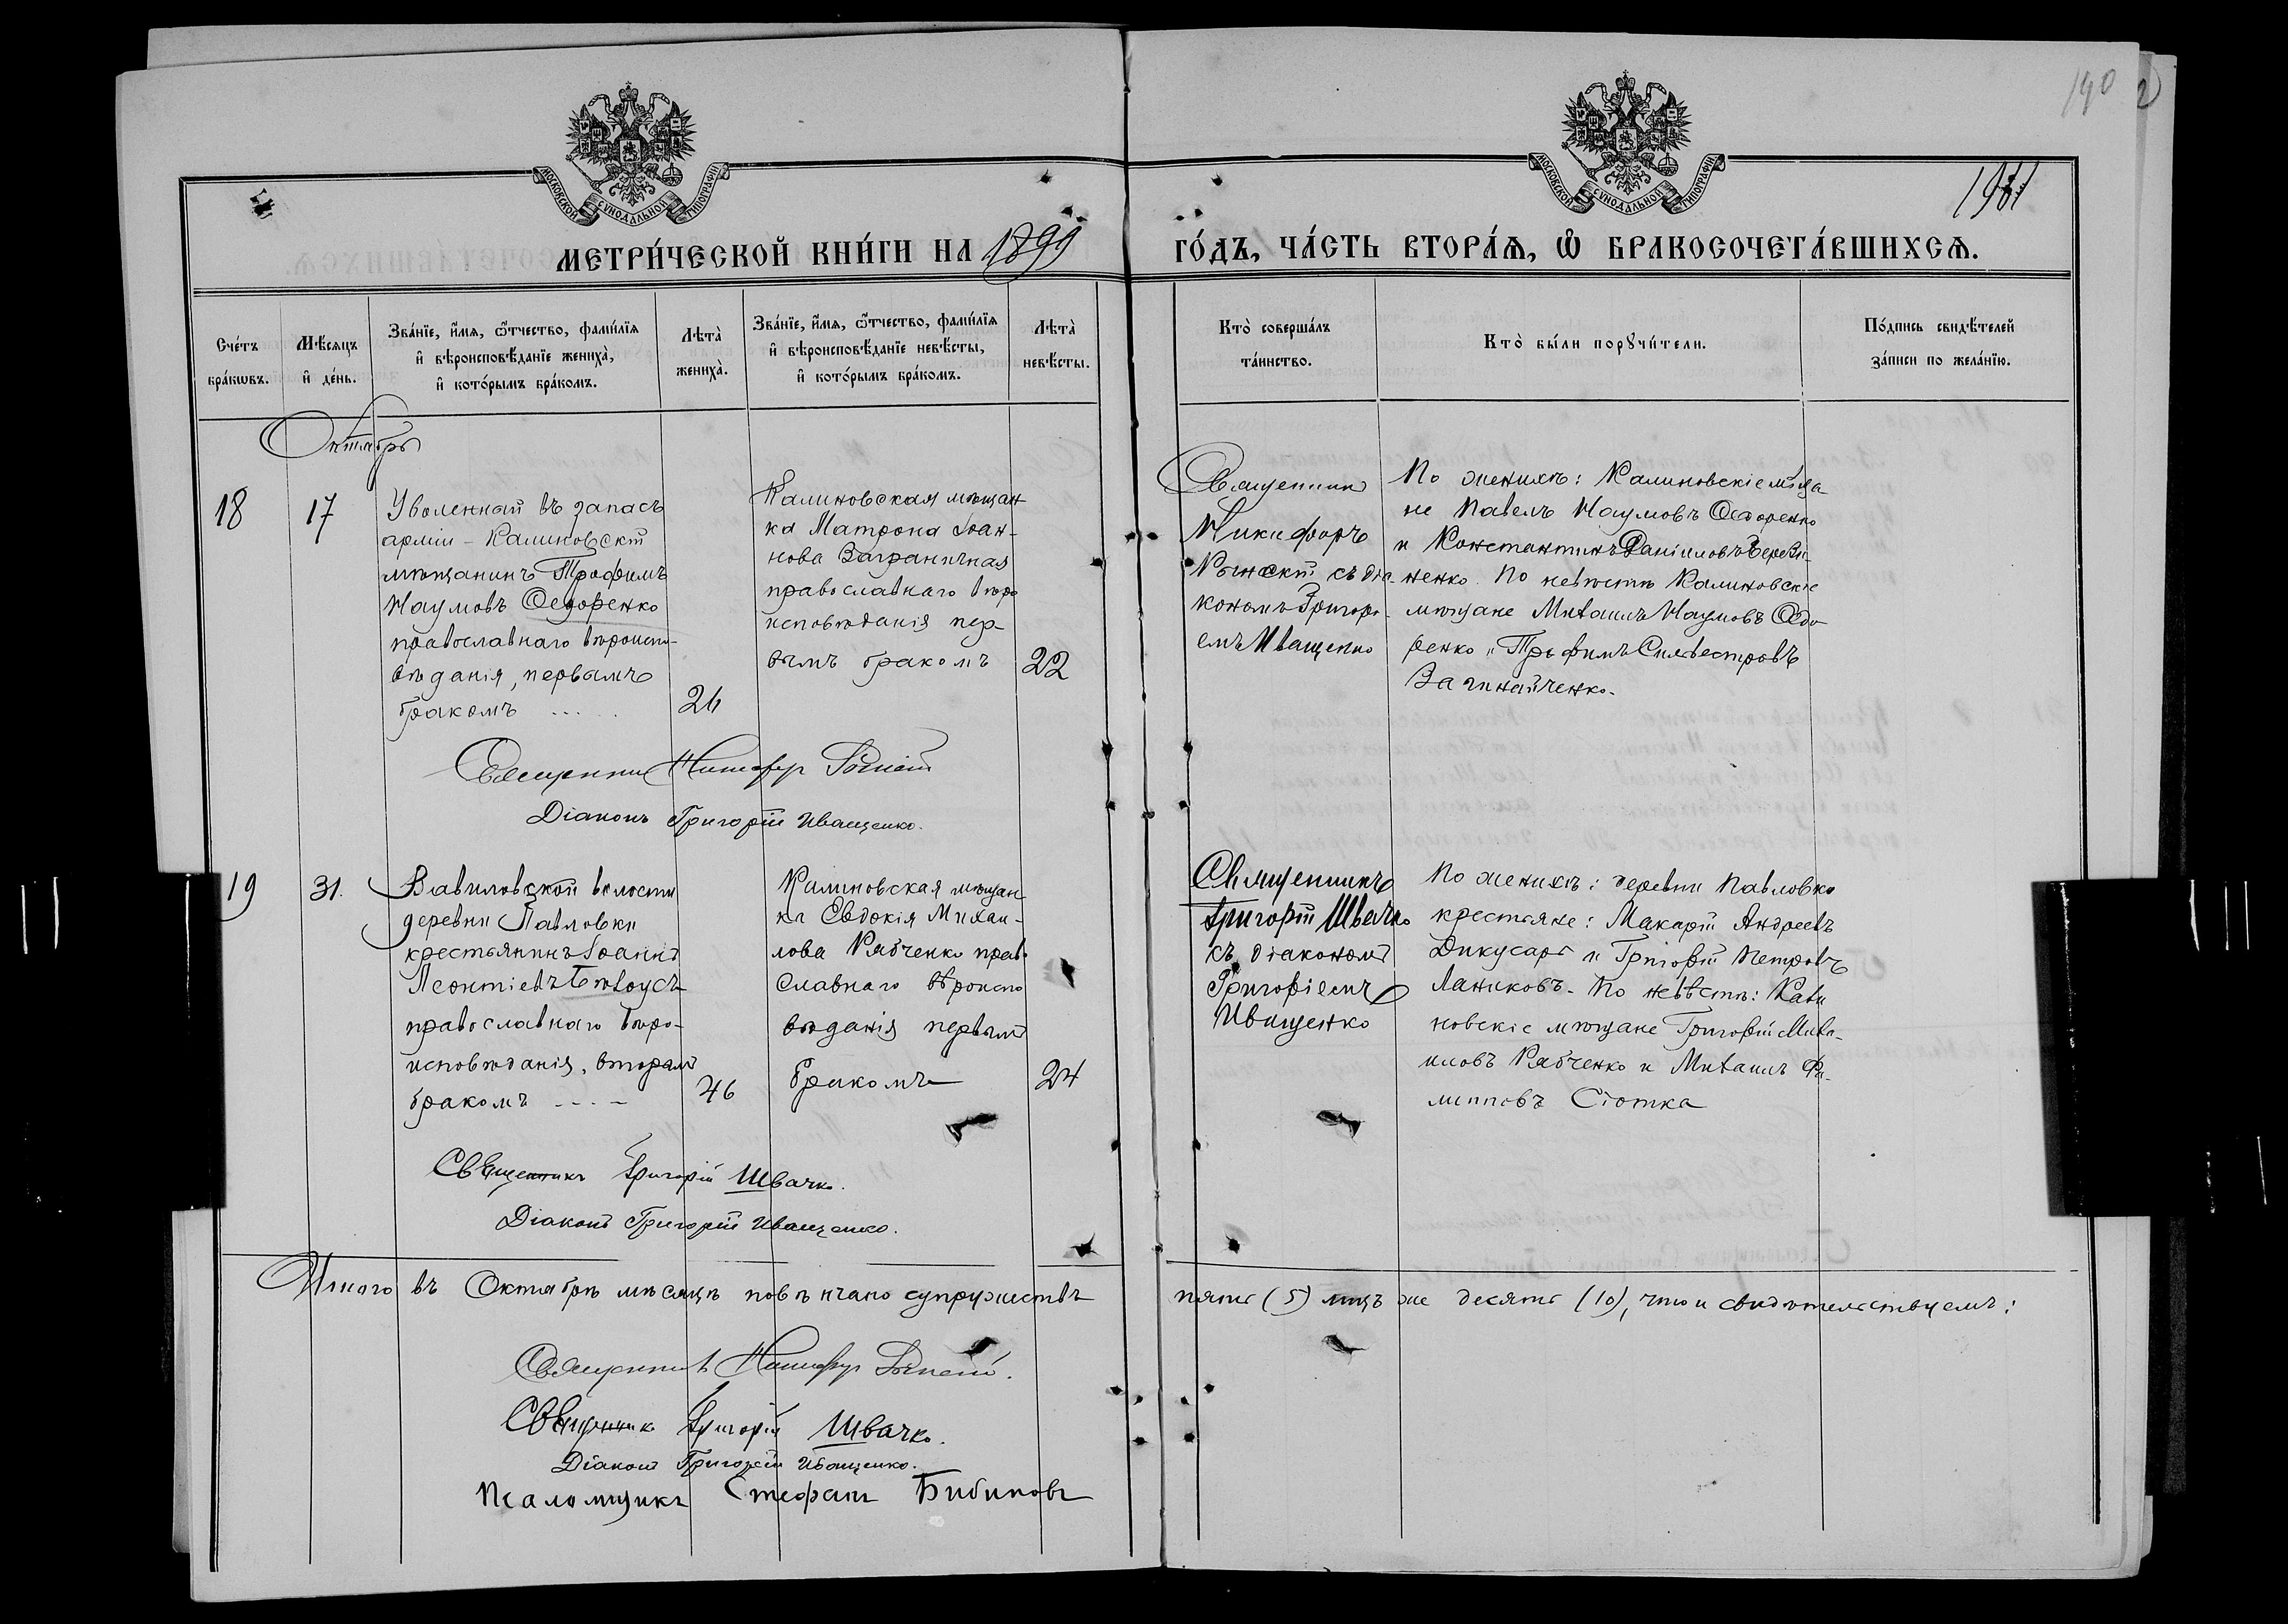 190
191
МОСКОВСКОЙ СѴНОДАЛЬНОЙ ТИПОГРАФІИ
МОСКОВСКОЙ СѴНОДАЛЬНОЙ ТИПОГРАФІИ
МЕТРИ́ЧЕСКОЙ КНИ́ГИ НА 1899 ГО́ДЪ, ЧА́СТЬ ВТОРА́Ѧ, Ѽ БРАКОСОЧЕТА́ВШИХСѦ.
Сче́тъ
бра́кѡвъ.
Мѣ́сяцъ
и҆ де́нь.
Зва́нїе, и҆́мѧ, ѻ҆́тчество, фами́лїѧ
и҆ вѣроисповѣ́данїе жениха̀,
и҆ кото́рымъ бра́комъ.
Лѣта̀
жениха̀.
Зва́нїе, и҆́мѧ, ѻ҆́тчество, фами́лїѧ
и҆ вѣроисповѣ́данїе невѣ́сты,
и҆ кото́рымъ бра́комъ.
Лѣта̀
невѣ́сты.
Кто̀ соверша́лъ
та́инство.
Кто̀ бы́ли порꙋчи́тели.
По́дпись свидѣ́телей
за́писи по жела́нїю.
Октябрь
18
17
Уволенный въ запасъ
арміи - Калиновскій
мѣщанинъ Трофимъ
Наумовъ Ѳедоренко
православнаго вѣроиспо-
вѣданія, первымъ
бракомъ
26
Калиновская мѣщан
ка Матрона Іоан-
нова Заграничная
православнаго вѣро
исповѣданія пер-
вымъ бракомъ
22
Священникъ
Никифоръ
съ діа-
кономъ Григорі-
емъ Иващенко
По женихѣ: Калиновскіе мѣща-
не Павелъ Наумовъ Ѳедоренко
и Константинъ Даніиловъ
ненко. По невѣстѣ Калиновскіе
мѣщане Михаилъ Наумовъ Ѳедо
ренко и Трофимъ Сильвестровъ
Священникъ Никифоръ
Діаконъ Григорій Иващенко.
19
31.
Вавиловской волости
деревни Павловки
крестьянинъ Іоаннъ
Леонтіевъ Бѣлоусъ
православнаго вѣро-
исповѣданія, вторымъ
бракомъ
46
Калиновская мѣщан
ка Евдокія Михаи-
лова Рябченко право
славнаго вѣроиспо
вѣданія первымъ
бракомъ
24
Священникъ
Григорій Швачко
съ діакономъ
Григоріемъ
Иващенко
По женихѣ: деревни Павловки
крестьяне: Макарій Андреевъ
Дикусаръ и Григорій Петровъ
Лаписковъ. По невѣстѣ: Кали
новскіе мѣщане Григорій Миха-
иловъ Рябченко и Михаилъ Фи-
липповъ Сіотка
Священникъ Григорій Швачко.
Діаконъ Григорій Иващенко.
Итого въ Октябрѣ мѣсяцѣ повѣнчано супружествъ пять (5) лицъ же десять (10), что и свидѣтельствуемъ:
Священникъ Никифоръ
Священникъ Григорій Швачко.
Діаконъ Григорій Иващенко.
Псаломщикъ Стефанъ Бибиковъ